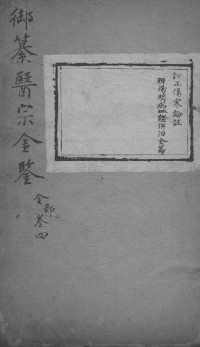 訂正傷寒論註
辨陽明病脉證併治全篇
御纂醫宗金鑒
金部卷四